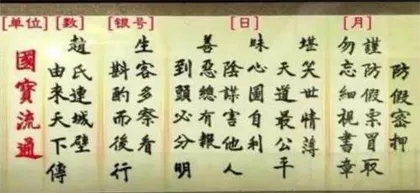 防假密押
[月]
謹防假票冒取
勿忘細視書章
[日]
堪笑世情薄
天道最公平
昧心圖自利
陰謀害他人
善惡總有報
到頭必分明
[银号]
生客多察看
斟酌而後行
[数]
趙氏連城壁
由來天下傳
[单位]
國寶流通